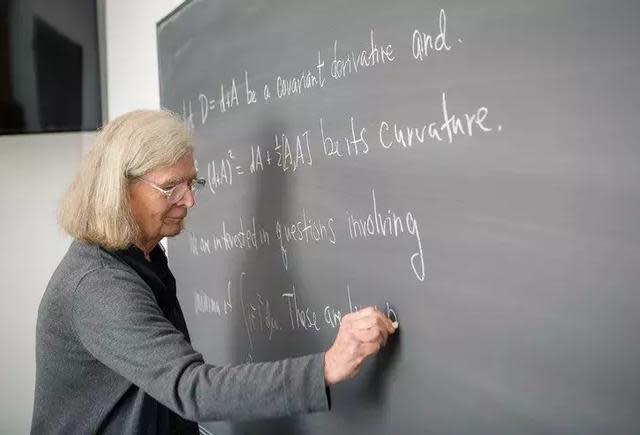 D = d+A be a covariant derivative and.
(d+A)² = dA + ½[A,A] be its curvature.
am interested in questions involving
minima of ∫ dμ. These are